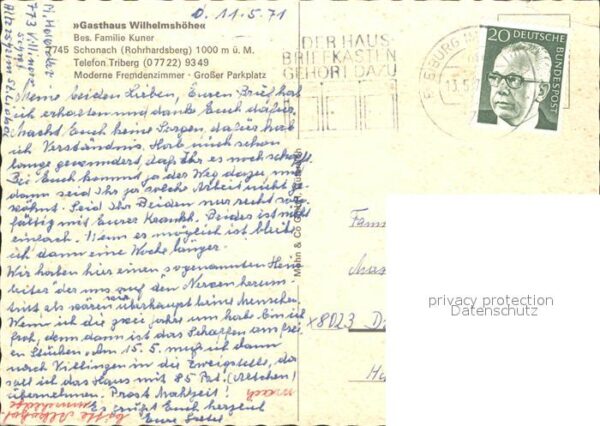 D. 11.5.71
»Gasthaus Wilhelmshöhe«
Bes. Familie Kuner
7745 Schonach (Rohrhardsberg) 1000 m ü. M.
Telefon Triberg (07722) 9349
Moderne Fremdenzimmer · Großer Parkplatz
773 Villingen
DER HAUS-
BRIEFKASTEN
GEHÖRT DAZU
FREIBURG
13.5.
20 DEUTSCHE
BUNDESPOST
Meine beiden Lieben, Euren Brief hab
ich erhalten und danke Euch dafür.
Macht Euch keine Sorgen, dafür hab
ich Verständnis. Hab mich schon
lange gewundert, daß Ihr es noch schafft.
Bei Euch kommt ja der Weg dazu, und
dann seid Ihr ja solche Arbeit nicht ge-
wöhnt. Seid Ihr Beiden nur recht sorg-
fältig mit Eurer Krankh. Beides ist nicht
einfach. Wenn es möglich ist bleib
ich dann eine Woche länger.
Wir haben hier einen sogenannten Heim-
leiter der uns auf den Nerven herum-
tritt als wären wir überhaupt keine Menschen.
Wenn ich die zwei Jahre um hab bin ich
froh, denn dann ist das Schaffen am frei-
en Stücken. Am 15.5. muß ich dann
nach Villingen in die Zweigstelle, da
soll ich das Haus mit 85 Pat. (Altchen)
übernehmen. Prost Mahlzeit!
Es grüßt Euch herzlich
Eure
bitte
Mohn & Co GmbH
Fam
8023 D
privacy protection
Datenschutz